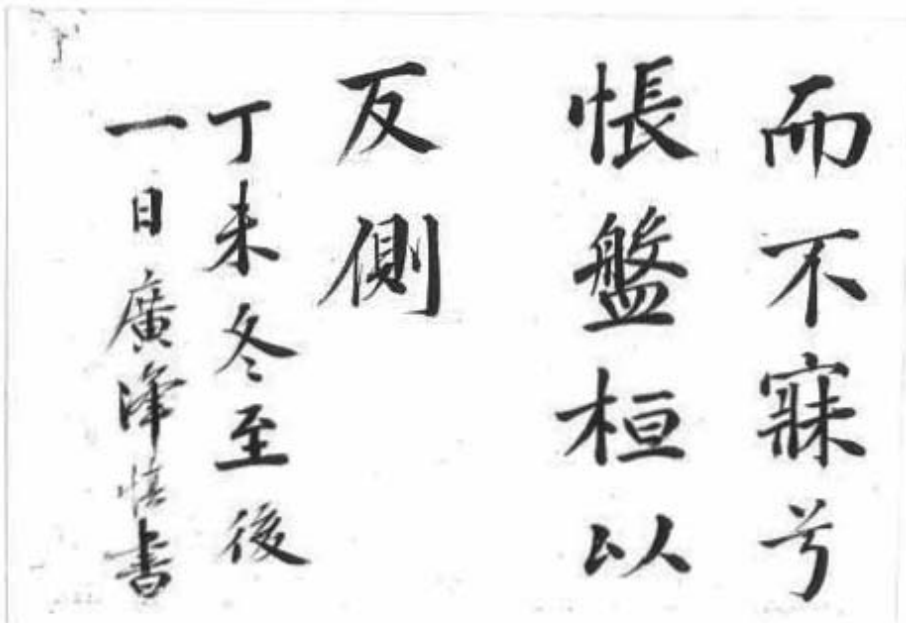 而不寐兮
悵盤桓以
反側
丁未冬至後
一日廣澤慎書